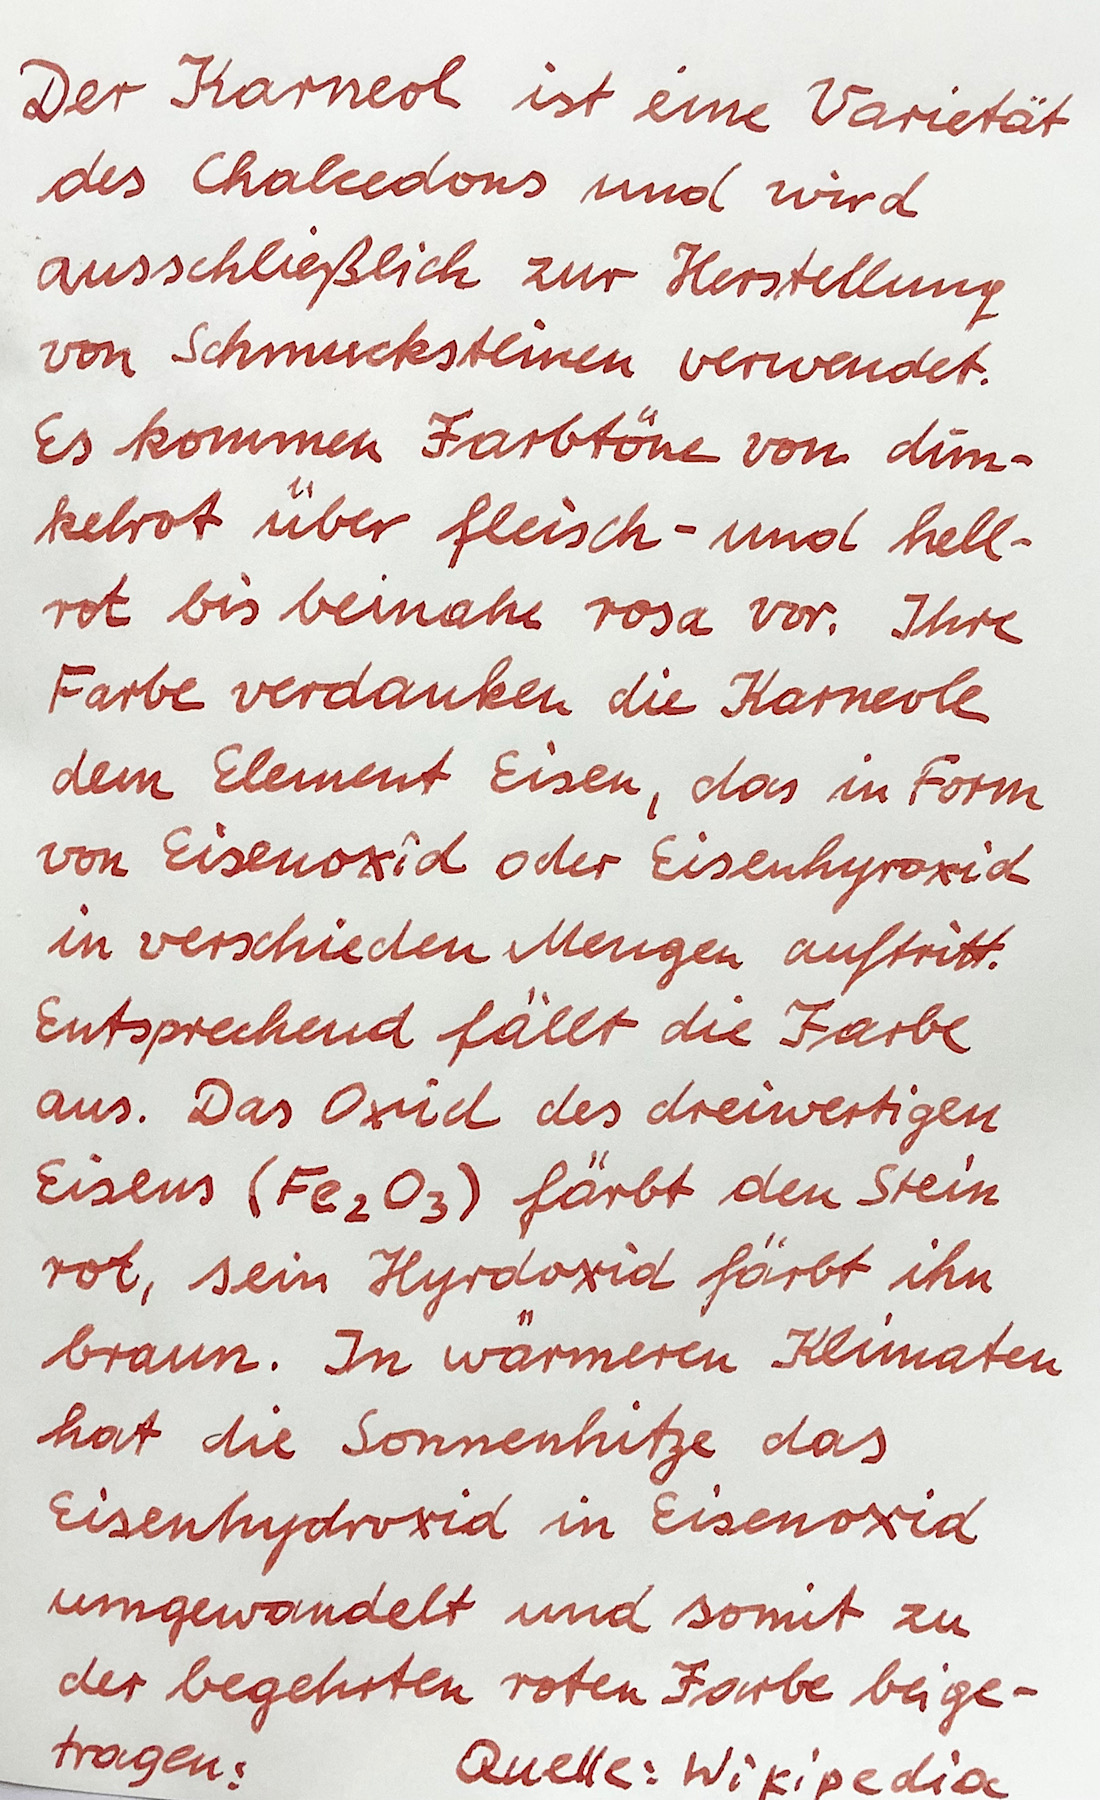 Der Karneol ist eine Varietät
des Chalcedons und wird
ausschließlich zur Herstellung
von Schmucksteinen verwendet.
Es kommen Farbtöne von dun-
kelrot über fleisch- und hell-
rot bis beinahe rosa vor. Ihre
Farbe verdanken die Karneole
dem Element Eisen, das in Form
von Eisenoxid oder Eisenhyroxid
in verschieden Mengen auftritt.
Entsprechend fällt die Farbe
aus. Das Oxid des dreiwertigen
Eisens (Fe₂O₃) färbt den Stein
rot, sein Hyrdoxid färbt ihn
braun. In wärmeren Klimaten
hat die Sonnenhitze das
Eisenhydroxid in Eisenoxid
umgewandelt und somit zu
der begehrten roten Farbe beige-
tragen: Quelle: Wikipedia